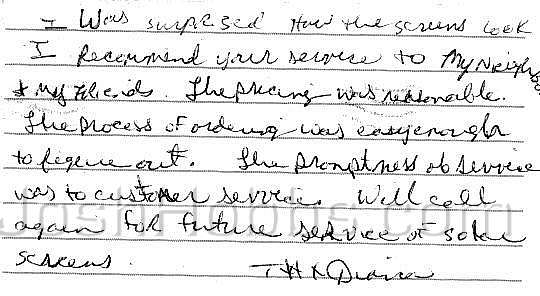 I Was surprised How the screens look
I Recommend your service to My Neighbors
& my Friends. The pricing was reasonable.
The process of ordering was easy enough
to figure out. The promptness of service
was to customer service. Will call
again for future service of solar
screens. THX
JoshHobbs.com